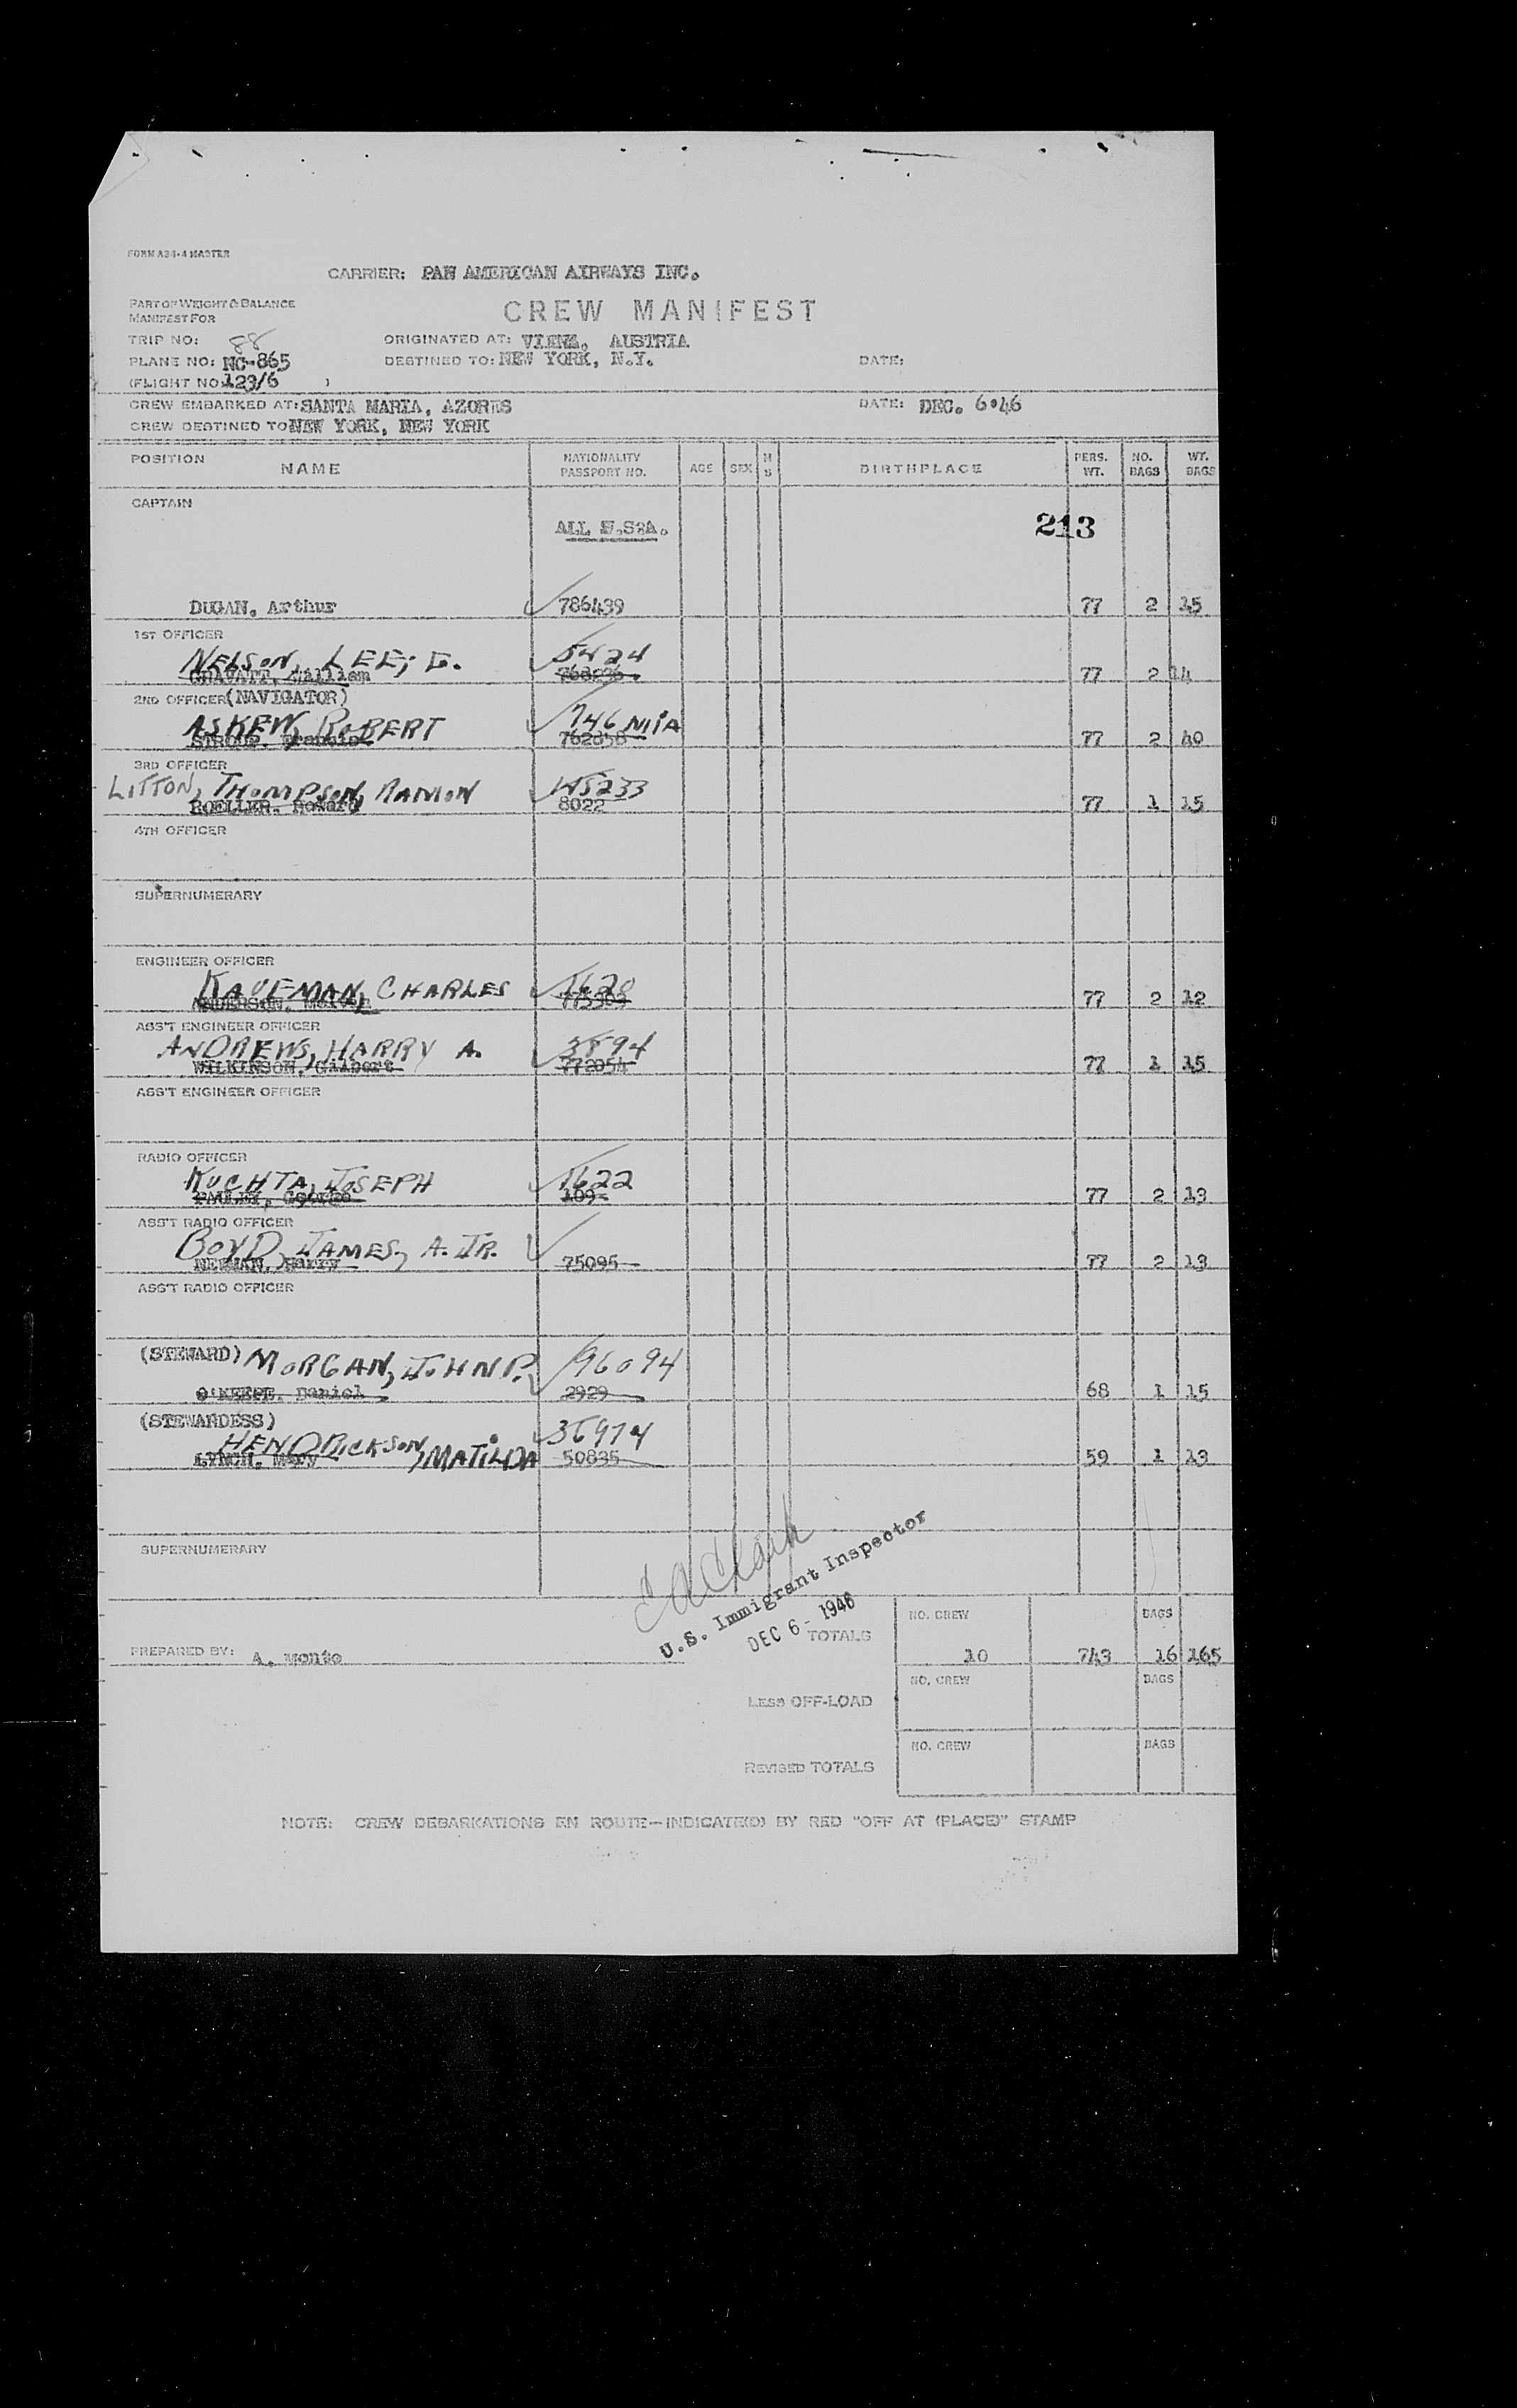 FORM A34-4 MASTER
CARRIER: PAN AMERICAN AIRWAYS INC.
PART OF WEIGHT & BALANCE
MANIFEST FOR
CREW MANIFEST
TRIP NO: 88
ORIGINATED AT: VIENA, AUSTRIA
PLANE NO: NC-865
DESTINED TO: NEW YORK, N.Y.
DATE:
(FLIGHT NO: 123/6 )
CREW EMBARKED AT: SANTA MARIA, AZORES
DATE: DEC. 6'46
CREW DESTINED TO NEW YORK, NEW YORK
POSITION NAME NATIONALITY PASSPORT NO. AGE SEX M S BIRTHPLACE PERS. WT. NO. BAGS WT. BAGS
CAPTAIN
ALL U.S.A.
213
DUGAN, Arthur 786439 77 2 15
1ST OFFICER
NELSON, LEE, G. 5424
William 77 2 14
2ND OFFICER (NAVIGATOR)
ASKEW, ROBERT 746 MIA
762858 77 2 40
3RD OFFICER
LITTON, THOMPSON, RAMON
8022 77 1 15
4TH OFFICER
SUPERNUMERARY
ENGINEER OFFICER
KAUFMAN, CHARLES 1628
ANDERSON, 77 2 12
ASS'T ENGINEER OFFICER
ANDREWS, HARRY A. 3894
WILKINSON, Gilbert 772054 77 1 15
ASS'T ENGINEER OFFICER
RADIO OFFICER
KUCHTA, JOSEPH 1622
George 109 77 2 13
ASS'T RADIO OFFICER
BOYD, JAMES, A. JR.
Harry 75095 77 2 13
ASS'T RADIO OFFICER
(STEWARD) MORGAN, JOHN P. 96094
O'KEEFE, Daniel 2929 68 1 15
(STEWARDESS)
HENDRICKSON, MATILDA 36974
LYNCH, Mary 50835 59 1 13
SUPERNUMERARY
U.S. Immigrant Inspector
DEC 6 - 1946
PREPARED BY: A. Monte
TOTALS NO. CREW 10 743 BAGS 16 165
LESS OFF-LOAD NO. CREW BAGS
REVISED TOTALS NO. CREW BAGS
NOTE: CREW DEBARKATIONS EN ROUTE—INDICATE(D) BY RED "OFF AT (PLACE)" STAMP